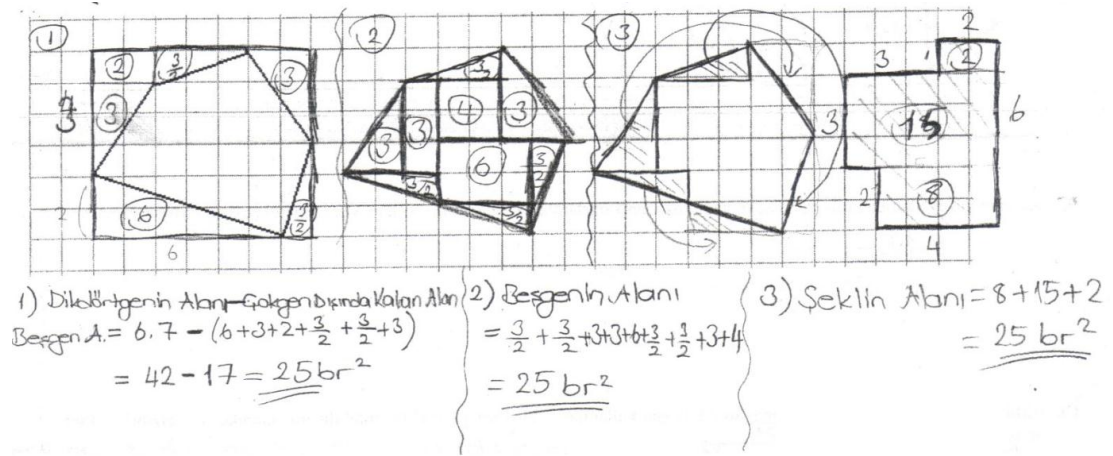 ① ② ③
2 3/2 3 3 6 3/2 2 6
3/2 4 3 3 3 6 3/2 3/2 3/2
2 3 1 2 3 15 6 2 8 4
1) Dikdörtgenin Alanı-Çokgen Dışında Kalan Alan
Beşgen A. = 6.7 - (6+3+2+3/2+3/2+3)
= 42-17 = 25 br²
2) Beşgenin Alanı
= 3/2 + 3/2 +3+3+6+3/2+3/2+3+4
= 25 br²
3) Şeklin Alanı = 8+15+2
= 25 br²